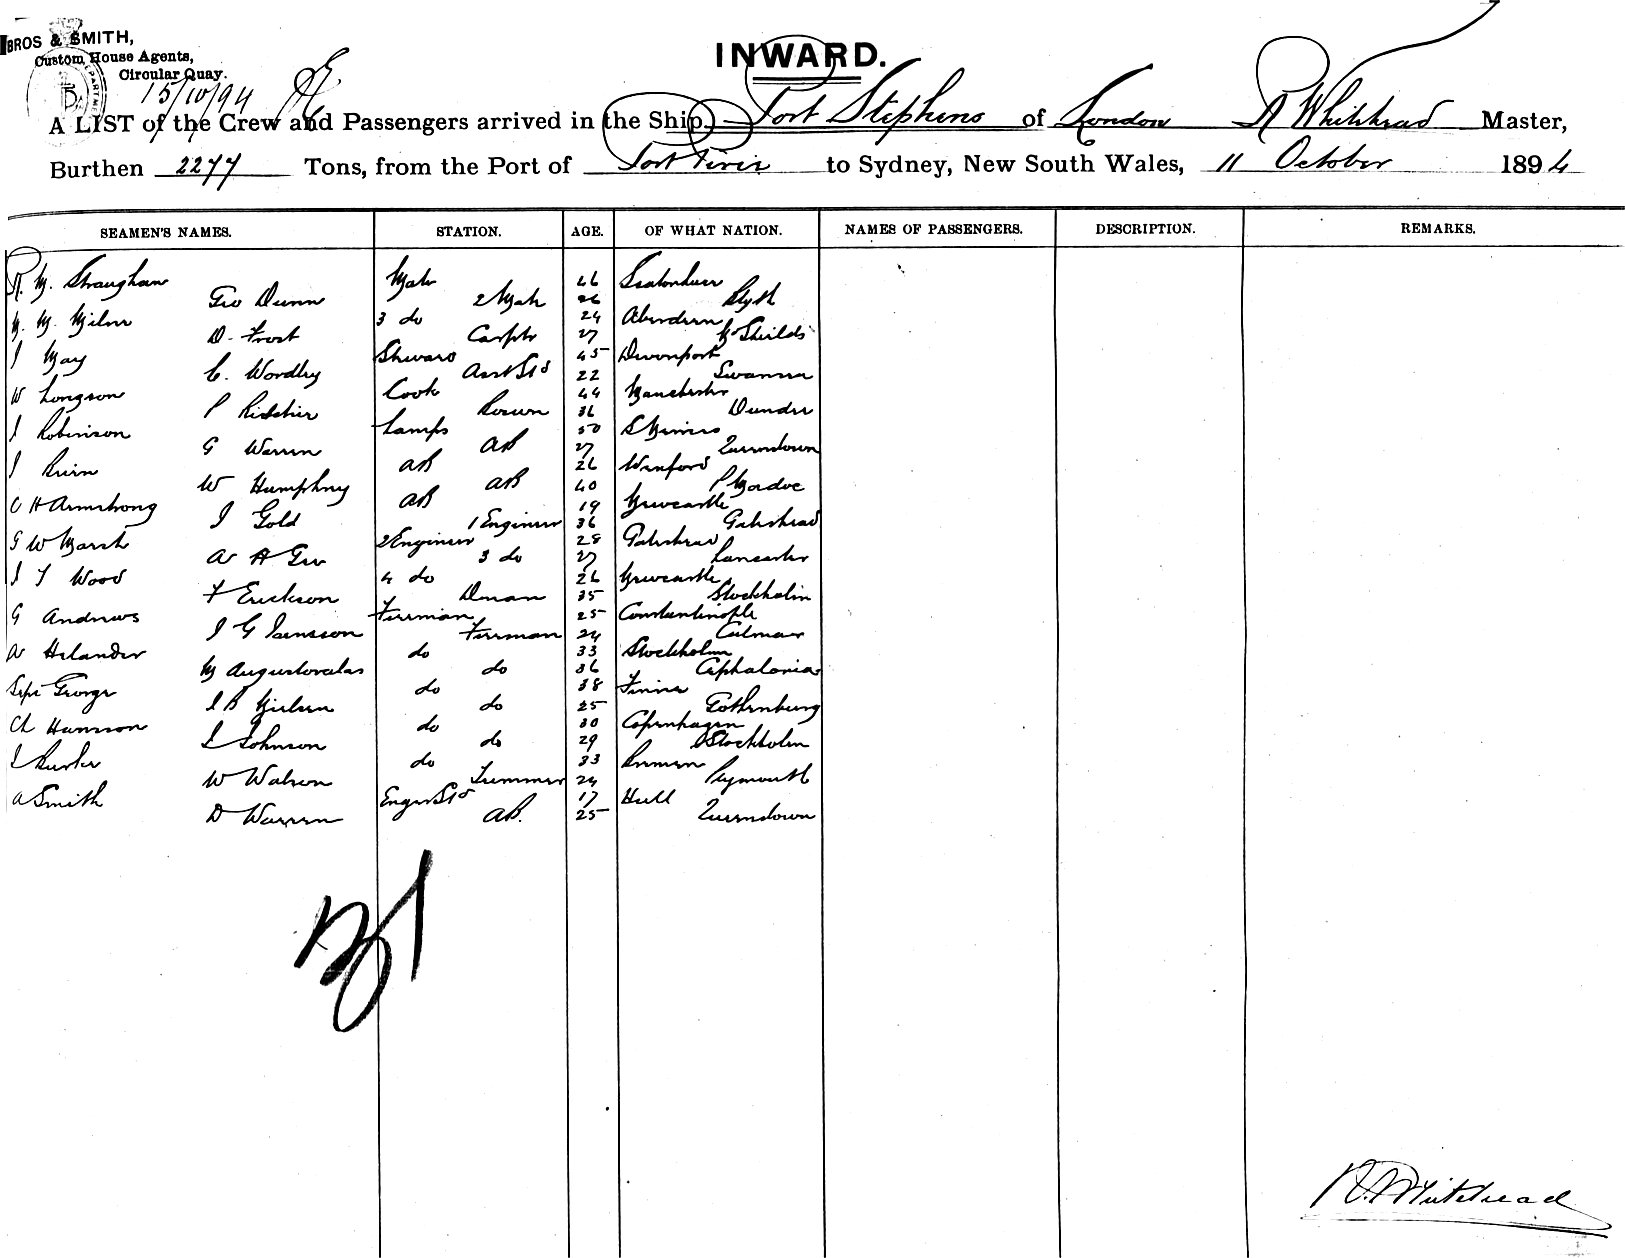 BROS & SMITH,
Custom House Agents,
Circular Quay.
15/10/94
INWARD.
A LIST of the Crew and Passengers arrived in the Ship Port Stephens of London R Whitehead Master,
Burthen 2277 Tons, from the Port of Port Pirie to Sydney, New South Wales, 11 October 1894
SEAMEN'S NAMES. STATION. AGE. OF WHAT NATION. NAMES OF PASSENGERS. DESCRIPTION. REMARKS.
R. M. Straughan Mate 46
Geo Dunn 2 Mate 26 Blyth
M. M. Milne 3 do 24 Aberdeen
D. Frost Carptr 27 No Shields
J May Steward 45 Devonport
C. Wordley Asst Std 22 Swansea
W Longson Cook 44 Manchester
P Ritchie Bosun 36 Dundee
J Robinson Lamps 50
G Warren AB 27 Queensdown
J AB 26 Winford
W Humphrey AB 40 P Madoc
C H Armstrong AB 19 Newcastle
J Gold 1 Engineer 36 Gateshead
G W Marsh 2 Engineer 28 Gateshead
A H Gee 3 do 27 Lancaster
J T Wood 4 do 26 Newcastle
F Erickson Dman 35 Stockholm
G Andrews Fireman 25 Constantinople
J G Jansson Fireman 24 Calmar
A Helander do 33 Stockholm
M Augustovalas do 36 Cephalonia
George do 38
J B Nielsen do 25 Gothenburg
Ch Hansson do 30 Copenhagen
J Johnson do 29 Stockholm
J do 33 Bremen
W Watson Trimmer 24 Plymouth
A Smith Engrs Std 17 Hull
D Warren AB. 25 Queensdown
R. Whitehead